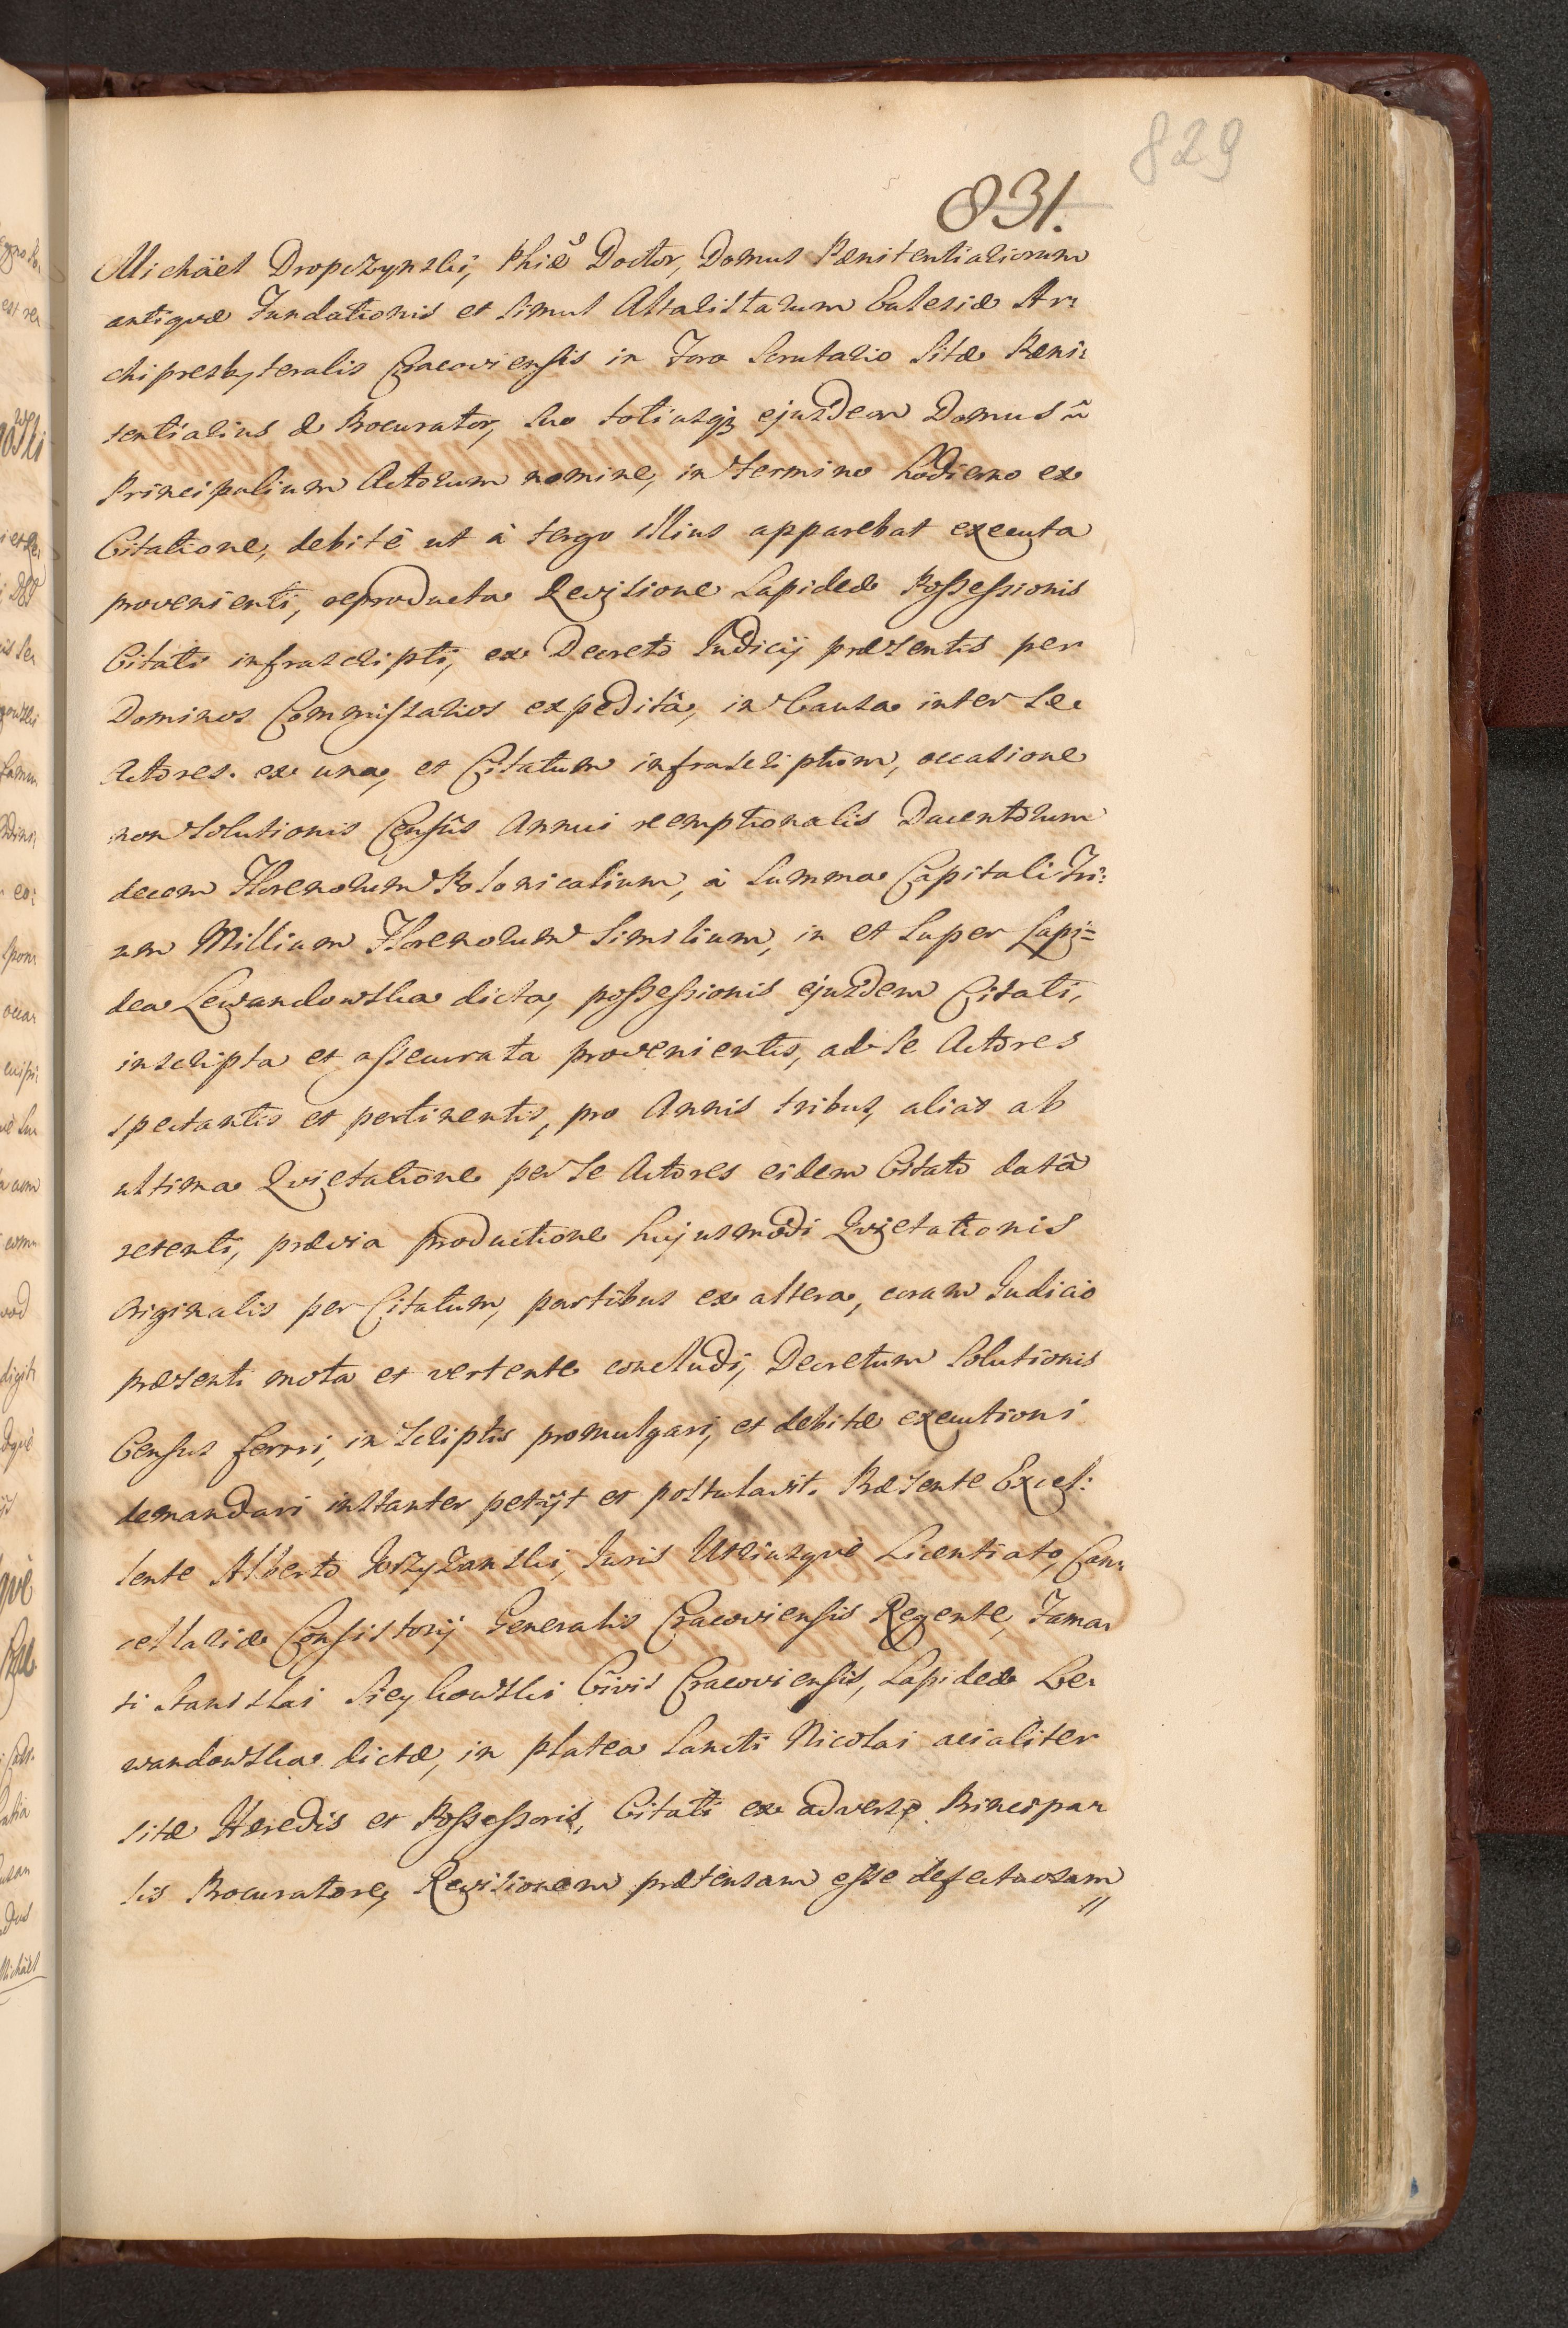 829
831.
Michäel Dropczynski, Phiæ Doctor, Domus Pænitentialiorum
antiquæ Fundationis et simul Altalistarum Ecclesiæ Ar:
chipresbyteralis Cracoviensis in Foro Scrutario sitæ Pæni:
tentialius & Procurator, suo totiusq3 ejusdem Domus
Principalium Actorum nomine, in termino hodierno ex
Citatione, debitè ut à tergo illius apparebat executa
provenienti, reproducta Revisione Lapideæ Possessionis
Citati infrascripti, ex Decreto Judicij præsentis per
Dominos Commissarios expeditâ, in Causa inter se
Actores ex una, et Citatum infrascriptum, occasione
non solutionis Censûs Annui reemptionalis Ducentorum
decem Florenorum Polonicalium, à Summa Capitali Tri:
um Millium Florenorum similium, in et super Lapi=
dea Lewandowska dicta, possessionis ejusdem Citati,
inscripta et assecurata provenientis, ad se Actores
spectantis et pertinentis, pro Annis tribus, alias ab
ultima Quietatione per se Actores eidem Citato datâ
retenti, prævia productione hujusmodi Quietationis
Originalis per Citatum, partibus ex altera, coram Judicio
præsenti mota et vertente concludi, Decretum solutionis
Census ferri, in scriptis promulgari, et debitæ executioni
demandari instanter petijt et postulavit. Præsente Excel:
lente Alberto Gorzyzanski, Juris Utriusquè Licentiato, Can:
cellariæ Consistorij Generalis Cracoviensis Regente, Fama:
ti Stanislai Civis Cracoviensis, Lapideæ Le:
wandowska dictæ, in platea Sancti Nicolai acialiter
sitæ Hæredis et Possessoris, Citati ex adverso Principa:
lis Procuratore, Revisionem prætensam esse defectuosam